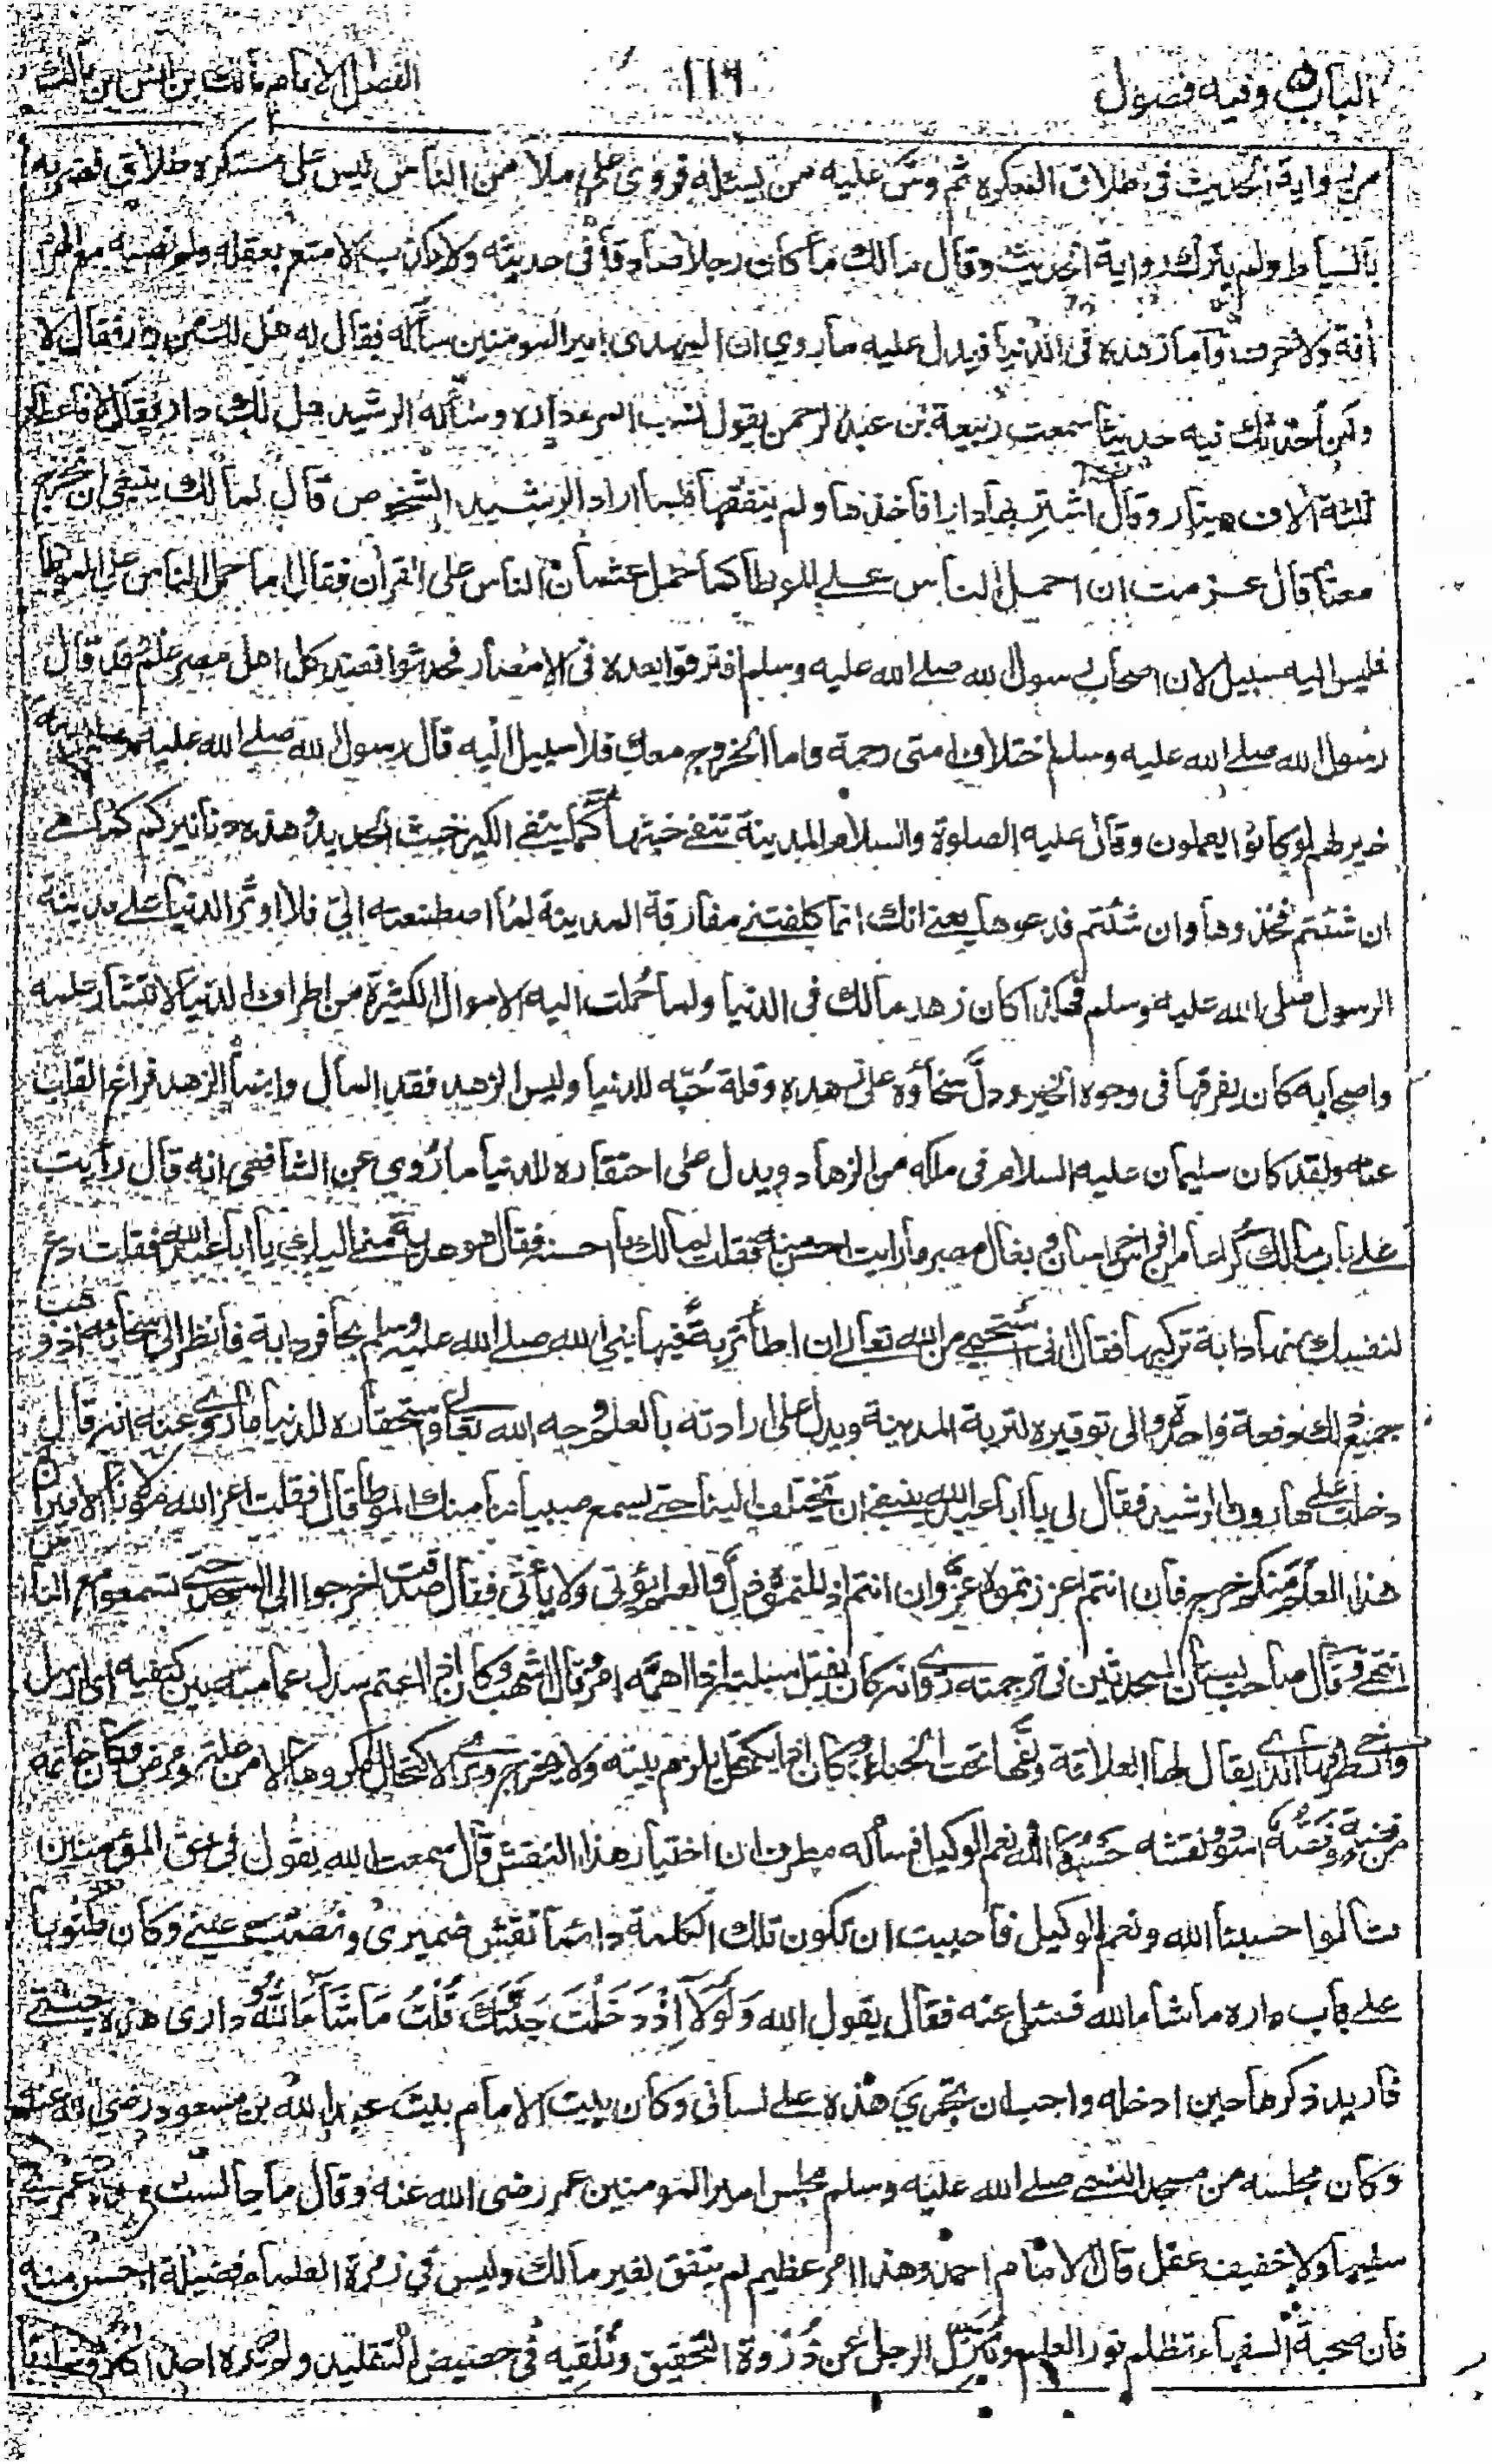 الباب وفيه فصول
١١٦
الفصل الامام مالك بن انس بن مالك
من رواية الحديث فى طلاق المكره ثم دس عليه من يسئله فروى على ملأ من الناس ليس على مستكره طلاق فضربه
بالسياط ولم يترك رواية الحديث وقال مالك ما كان رجلا صادقا فى حديثه ولا يكذب الا متع بعقله ولم تصبه مع الهرم
آفة ولا خرف واما زهده فى الدنيا فيدل عليه ما روي ان المهدى امير المومنين سأله فقال له هل لك من دار فقال لا
ولكن احدثك فيه حديثا سمعت ربيعة بن عبد الرحمن يقول نسب المرء داره وسأله الرشيد هل لك دار فقال لا فاعطاه
ثلثة آلاف دينار وقال اشتر بها دارا فاخذها ولم ينفقها فلما اراد الرشيد الشخوص قال لمالك ينبغى ان تخرج
معنا قال عزمت ان احمل الناس على الموطا كما حمل عثمان الناس على القرآن فقال اما حمل الناس على الموطا
فليس اليه سبيل لان اصحاب رسول الله صلى الله عليه وسلم افترقوا بعده فى الامصار فحدثوا فعند كل اهل مصر علم وقد قال
رسول الله صلى الله عليه وسلم اختلاف امتى رحمة واما الخروج معك فلا سبيل اليه قال رسول الله صلى الله عليه وسلم المدينة
خير لهم لو كانوا يعملون وقال عليه الصلوة والسلام المدينة تنفى خبثها كما ينفى الكير خبث الحديد وهذه دنانيركم كما هى
ان شئتم فخذوها وان شئتم فدعوها يعنى انك انما كلفتنى مفارقة المدينة لما اصطنعته الىّ فلا اوثر الدنيا على مدينة
الرسول صلى الله عليه وسلم فهكذا كان زهد مالك فى الدنيا ولما حُملت اليه الاموال الكثيرة من اطراف الدنيا لانتشار علمه
واصحابه كان يفرقها فى وجوه الخير ودلّ سخاؤه على زهده وقلة حُبّه للدنيا وليس الزهد فقد المال وانما الزهد فراغ القلب
عنه ولقد كان سليمان عليه السلام فى ملكه من الزهاد ويدل على احتقاره للدنيا ما رُوى عن الشافعى انه قال رأيت
على باب مالك كراعا من افراس خراسان وبغال مصر ما رايت احسن منه فقلت لمالك ما احسنه فقال هو هدية منى اليك يا ابا عبد الله فقلت دع
لنفسك منها دابة تركبها فقال انى استحيى من الله تعالى ان اطأ تربة فيها نبى الله صلى الله عليه وسلم بحافر دابة فانظر الى سخائه اذ وهب
جميع ذلك دفعة واحدة والى توقيره لتربة المدينة ويدل على ارادته بالعلم وجه الله تعالى واستحقاره للدنيا ما روى عنه انه قال
دخلت على هارون الرشيد فقال لى يا ابا عبد الله ينبغى ان تختلف الينا حتى يسمع صبياننا منك الموطا قال فقلت اعز الله مولانا الامير ان
هذا العلم منكم خرج فان انتم اعززتموه عزّ وان انتم اذللتموه ذلّ والعلم يؤتى ولا يأتى فقال صدقت اخرجوا الى المسجد حتى تسمعوا مع الناس
انتهى وقال صاحب بستان المحدثين فى ترجمته وانه كان يفتل سبلته اذا اهمّه امر وقال اشهب وكان اذا اعتم سدل عمامته بين كتفيه اى ارسل
وارخى طرفها الذى يقال لها العلاقة ولفّها تحت الحنك وكان اذا يكتحل يلزم بيته ولا يخرج ويرى الاكتحال مكروها الا من علة ومرض وكان خاتمه
من فضة وفصّه اسود نقشه حَسْبُنَا الله ونعم الوكيل فسأله مطرف ان اختيار هذا النقش قال سمعت الله يقول فى حق المؤمنين
قالوا حسبنا الله ونعم الوكيل فاحببت ان تكون تلك الكلمة دائما نقش ضميرى ونصب عينى وكان مكتوبا
على باب داره ما شاء الله فسئل عنه فقال يقول الله وَلَوْلَا اِذْ دَخَلْتَ جَنَّتَكَ قُلْتَ مَا شَاءَ اللهُ دارى هذه جنتى
فاريد ذكرها حين ادخله واحب ان تجرى هذه على لسانى وكان بيت الامام بيت عبد الله بن مسعود رضى الله عنه
وكان مجلسه من مسجد النبى صلى الله عليه وسلم مجلس امير المومنين عمر رضى الله عنه وقال ما جالست
سفيها ولا خفيف عقل قال الامام احمد وهذا امر عظيم لم يتفق لغير مالك وليس فى زمرة العلماء فضيلة احسن منه
فان صحبة السفهاء تظلم نور العلم وتُنَزِّل الرجل عن ذُرْوة التحقيق وتُلقيه فى حضيض التقليد ولم يذكره احد